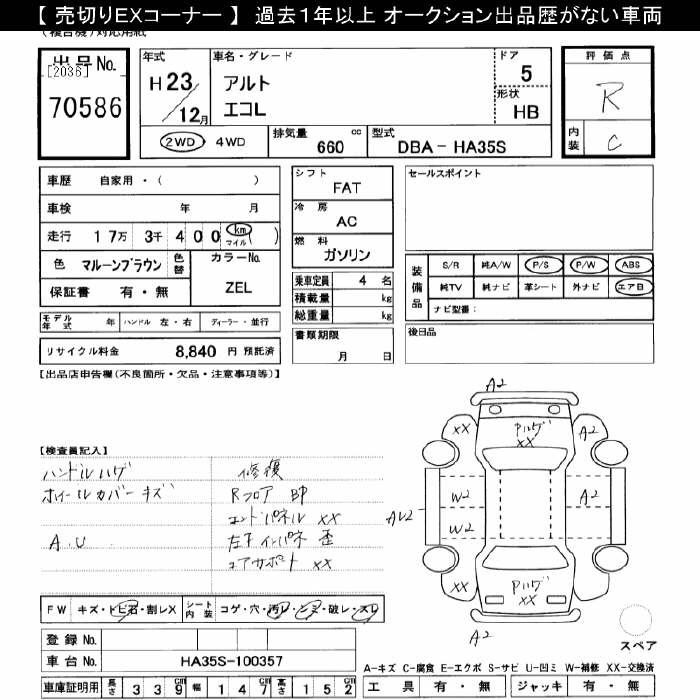 【 売切りEXコーナー 】 過去１年以上 オークション出品歴がない車両
(複合機)対応用紙
出品No.
[2036]
70586
年式
H 23
／12月
車名・グレード
アルト
エコL
ドア
5
形状
HB
評価点
R
内装
C
2WD ・ 4WD
排気量
660 cc
型式
DBA − HA35S
車歴 自家用・( )
車検 年 月
走行 1 7万 3千 4 0 0 km マイル ( )
色 マルーンブラウン 色替
カラーNo.
保証書 有・無
ZEL
モデル年式 年 ハンドル 左・右 ディーラー・並行
リサイクル料金 8,840 円 預託済
シフト
FAT
冷房
AC
燃料
ガソリン
乗車定員 4 名
積載量 kg
総重量 kg
書類期限
月 日
セールスポイント
装備品
S/R 純A/W P/S P/W ABS
純TV 純ナビ 革シート 外ナビ エアB
ナビ型番：
後日品
【出品店申告欄(不良箇所・欠品・注意事項等)】
【検査員記入】
ハンドルハゲ
ホイールカバーキズ
A.U
修復
Rフロア BP
エンドパネル XX
左右インパネ 歪
コアサポート XX
A2
XX
Pハゲ
XX
A2
W2
W2
AU2
A2
XX
Pハゲ
XX
A2
スペア
FW キズ・トビ石・割レX
シート内装 コゲ・穴・汚レ・シミ・破レ・スレ
登録 No.
車台 No. HA35S-100357
車庫証明用 長さ 3 3 9 幅 1 4 7 高さ 1 5 2
A−キズ C−腐食 E−エクボ S−サビ U−凹ミ W−補修 XX−交換済
工具 有・無 ジャッキ 有・無